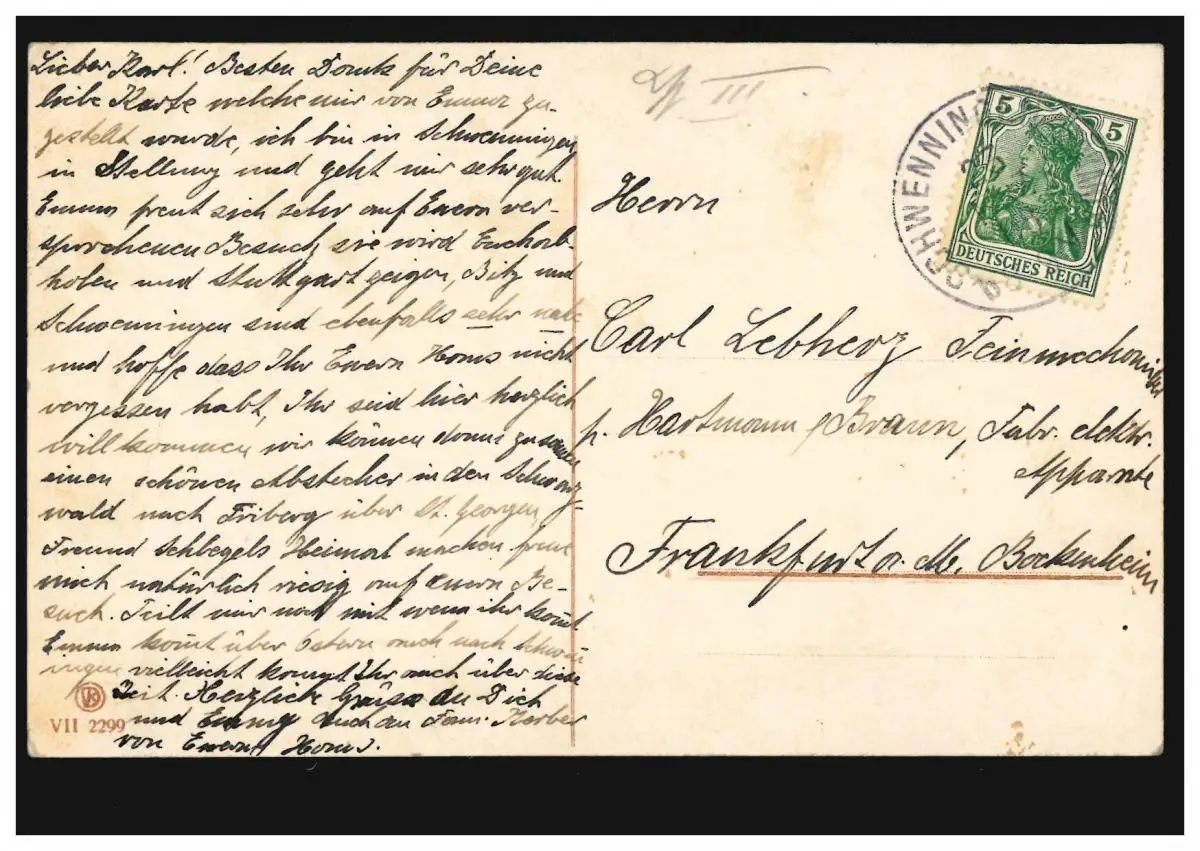 Lieber Karl! Besten Dank für Deine
liebe Karte welche mir von Emma zu-
gestellt wurde, ich bin in Schwenningen
in Stellung und geht mir sehr gut.
Emma freut sich sehr auf Euern ver-
sprochenen Besuch, sie wird Euch ab-
holen und Stuttgart zeigen, Bitz und
Schwenningen sind ebenfalls sehr nahe
und hoffe dass Ihr Euern Hans nicht
vergessen habt, Ihr seid hier herzlich
willkommen wir können dann zusammen
einen schönen Abstecher in den Schwarz-
wald nach Triberg über St. Georgen,
Freund Schlegels Heimat machen freue
mich natürlich riesig auf euern Be-
such. Teilt mir noch mit wenn ihr kom̄t
Emma kom̄t über Ostern auch nach Schwen
ningen vielleicht kommt Ihr auch über diese
Zeit. Herzliche Grüsse an Dich
und Emmy auch an Fam. Korber
von Euerm Hans.
VII 2299
III
SCHWENNINGEN
5 5
DEUTSCHES REICH
Herrn
Carl Lebherz Feinmechaniker
p. Hartmann & Braun, Fabr. elektr.
Apparate
Frankfurt a. M. Bockenheim